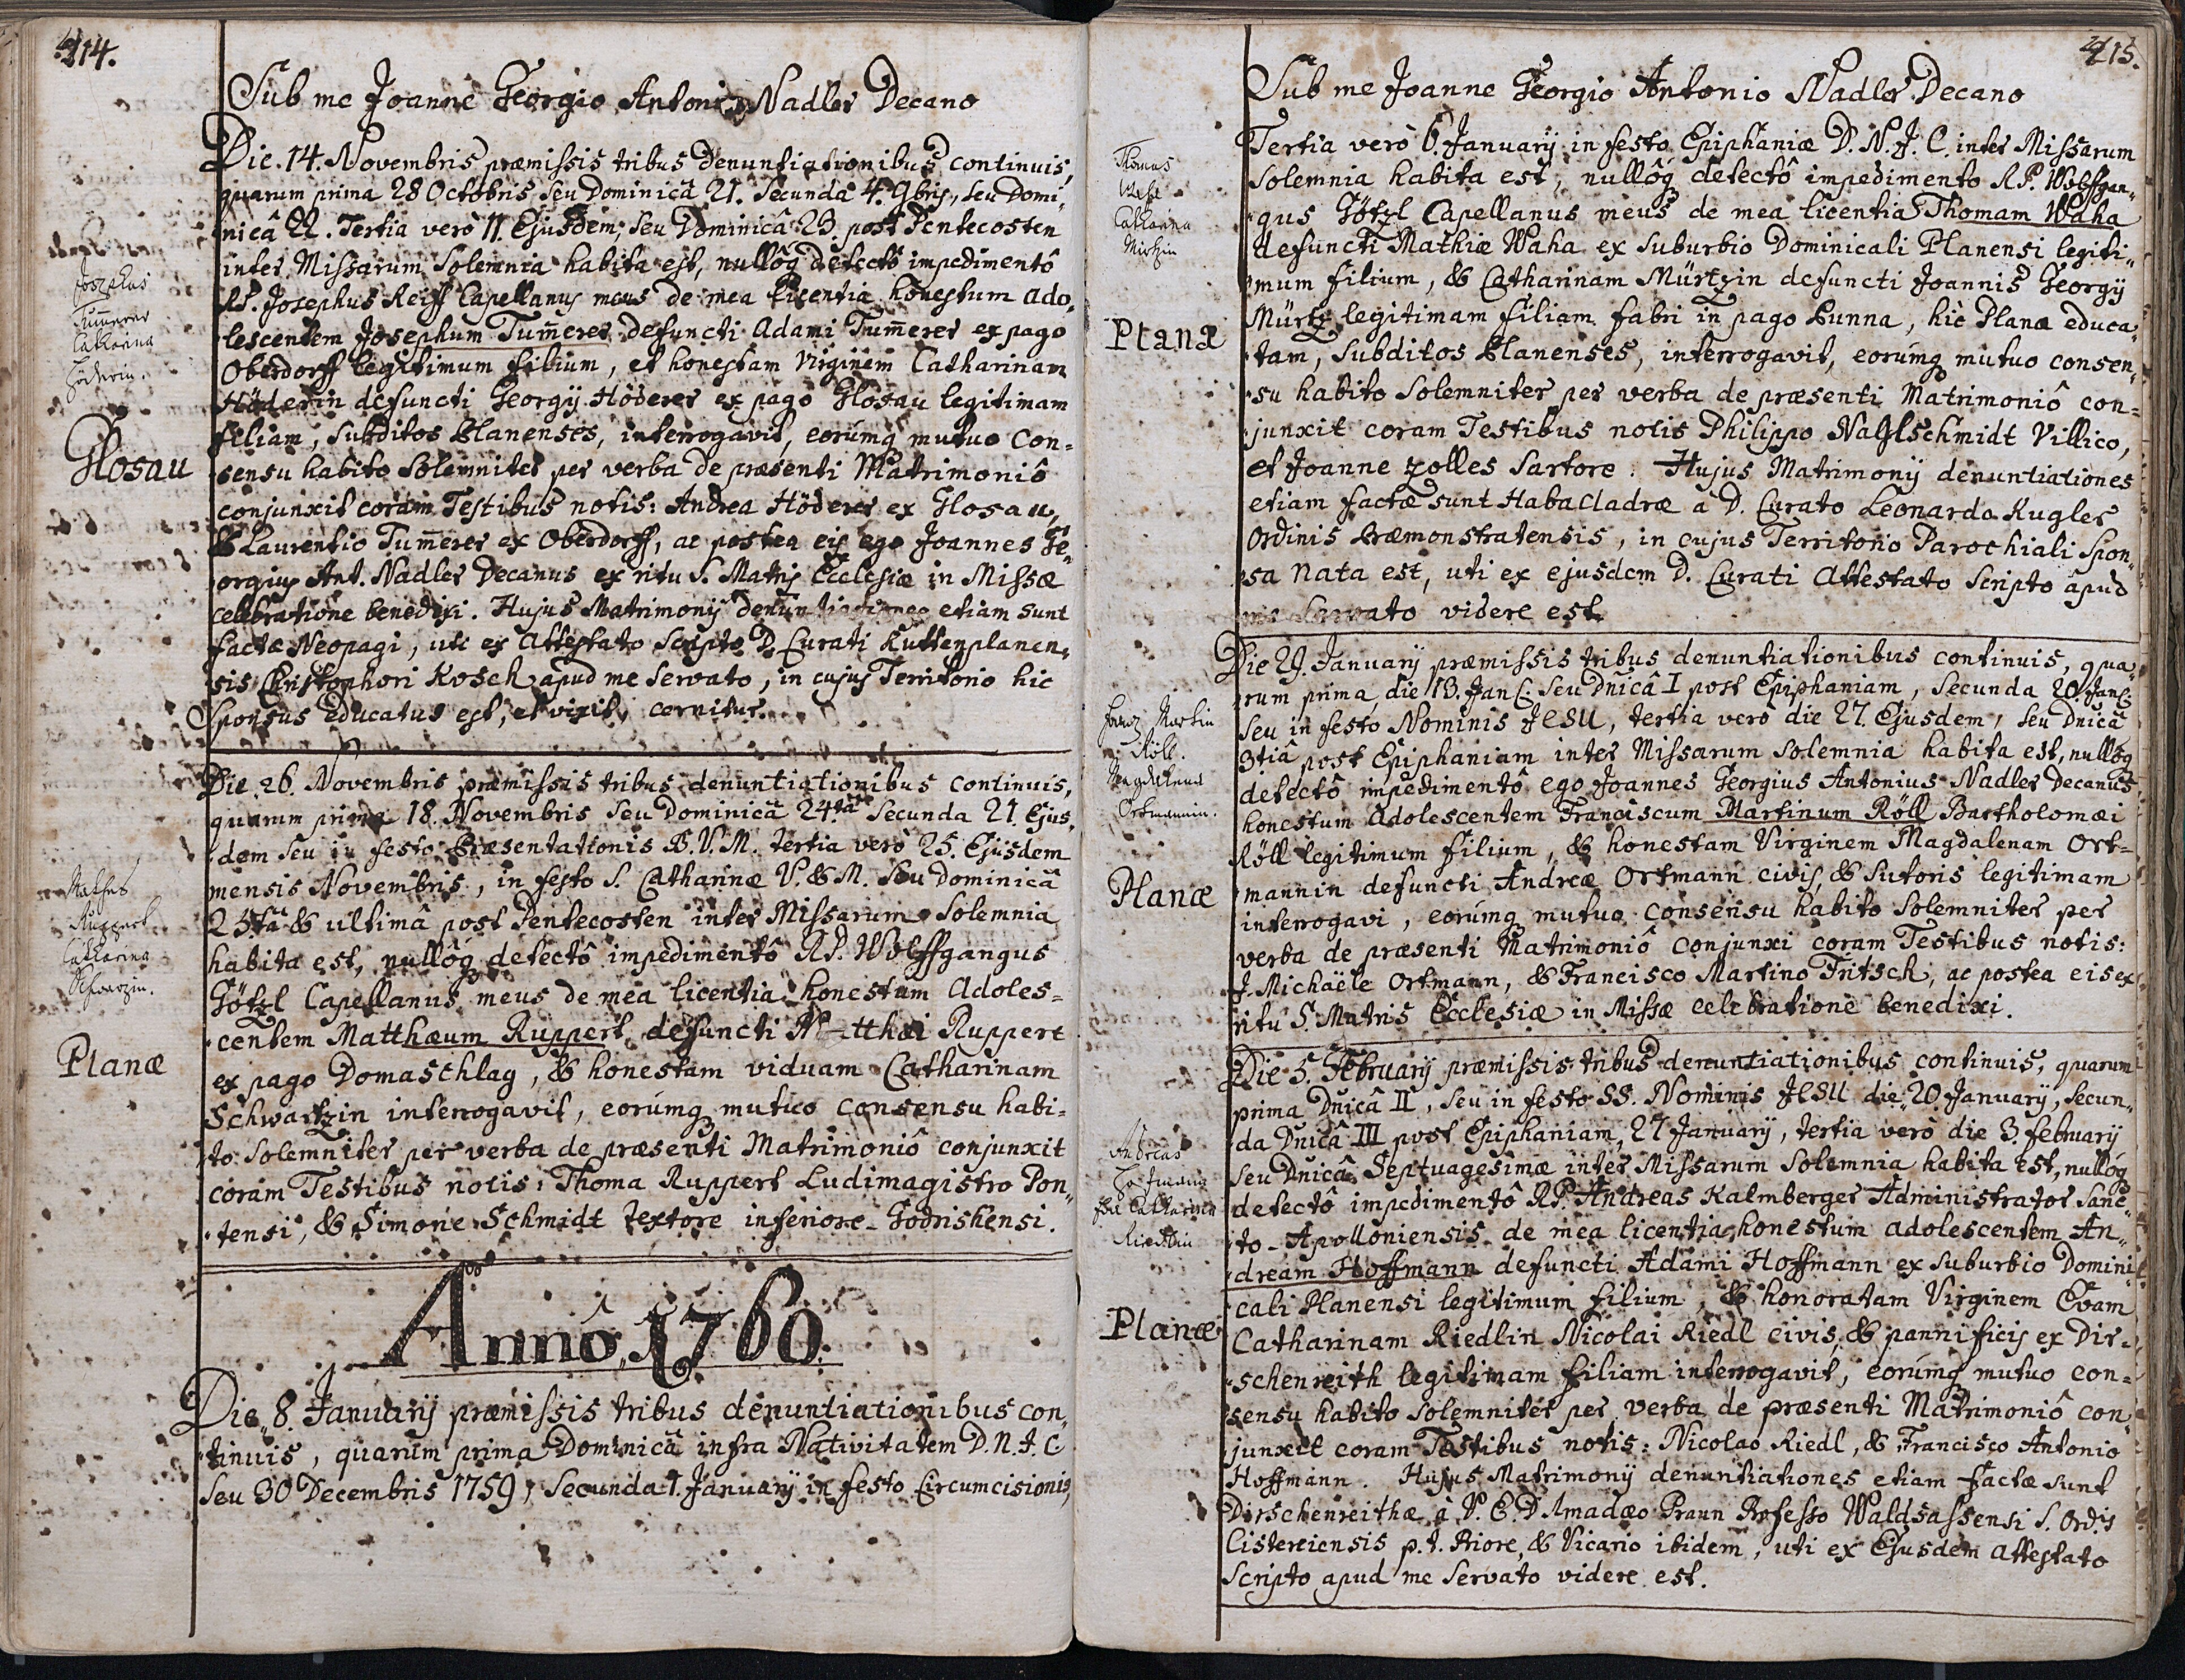 214.
Sub me Joanne Georgio Antonio Nadler Decano
Die. 14. Novembris præmissis tribus denuntiationibus continuis,
quarum prima 28 Octobris seu Dominicâ 21. Secunda 4. 9bris, seu Domi,
nicâ 22. Tertia verò 11. Ejusdem seu Dominicâ 23 post Pentecosten
inter Missarum Solemnia habita est, nullôq detectô impedimentô
RP. Josephus Reiff Capellanus meus de mea licentia honestum ado,
lescentem Josephum Tum̄erer defuncti Adami Tum̄erer ex pago
Oberdorff legitimum filium, et honestam Virginem Catharinam
Höderin defuncti Georgij Höderer ex pago Glosau legitimam
filiam, subditos Planenses, interrogavit, eorúmq mutuo Con=
sensu habito Solemniter per verba de præsenti Matrimoniô
conjunxit coram Testibus notis: Andrea Höderer ex Glosau,
& Laurentio Tum̄erer ex Oberdorff, ac postea eis ego Joannes Ge,
orgius Ant. Nadler Decanus ex ritu S. Matris Ecclesiæ in Missæ
celebratione benedixi. Hujus Matrimonij denuntiationes etiam sunt
factæ Neopagi, uti ex Attestato scripto D. Curati Kuttenplanen,
sis Christophori Kosch apud me servato, in cujus Territorio hic
Sponsus educatus est, et vixit, cernitur.
Josephus
Tum̄erer
Catharina
Höderin.
Glosau
Die 26. Novembris præmissis tribus denuntiationibus continuis,
quarum prima 18. Novembris seu Dominicâ 24.tâ Secunda 21. Ejus,
dem seu in festo Præsentationis B.V.M. tertia verò 25. Ejusdem
mensis Novembris, in festo S. Catharinæ V. & M. seu Dominicâ
25tâ & ultimâ post Pentecosten inter Missarum Solemnia
habita est, nullôq detectô impedimentô RP. Wolffgangus
Götzl Capellanus meus de mea licentia honestum Adoles=
centem Matthæum Ruppert defuncti Matthæi Ruppert
ex pago Domaschlag, & honestam viduam Catharinam
Schwartzin interrogavit, eorúmq mutuo consensu habi=
to Solemniter per verba de præsenti Matrimoniô conjunxit
coram Testibus notis: Thoma Ruppert Ludimagistro Pon,
tensi, & Simone Schmidt textore inferiore-Godrishensi.
Mathes
Ruppert
Catharina
Schwarzin.
Planæ
Annô 1760.
Die 8. Januarij præmissis tribus denuntiationibus con,
tinuis, quarum prima Dominicâ infra Nativitatem D.N.J.C.
seu 30 Decembris 1759, Secunda 1. Januarij in festo Circumcisionis,
215.
Sub me Joanne Georgio Antonio Nadler Decano
Tertia verò 6. Januarij in festo Epiphaniæ D.N.J.C. inter Missarum
Solemnia habita est, nullôq detectô impedimento RP. Wolffgan,
gus Götzl Capellanus meus de mea licentia Thomam Waha
defuncti Mathiæ Waha ex suburbio Dominicali Planensi legiti,
mum filium, & Catharinam Mürtzin defuncti Joannis Georgij
Mürtz legitimam filiam fabri in pago Punna, hic Planæ educa,
tam, subditos Planenses, interrogavit, eorúmq mutuo consen,
su habito Solemniter per verba de præsenti Matrimoniô con=
junxit coram Testibus notis Philippo Naglschmidt Villico,
et Joanne Zolles Sartore. Hujus Matrimonij denuntiationes
etiam factæ sunt Habacladræ à D. Curato Leonardo Kugler
Ordinis Præmonstratensis, in cujus Territorio Parochiali Spon,
sa nata est, uti ex ejusdem D. Curati Attestato Scripto apud
me servato videre est.
Thomas
Catharina
Planæ
Die 29. Januarij præmissis tribus denuntiationibus continuis, qua,
rum prima die 13. Jan: seu Dnicâ I post Epiphaniam, Secunda 20. Jan:
seu in festo Nominis JESU, tertia verò die 27. Ejusdem, seu Dnicâ
3tiâ post Epiphaniam inter Missarum Solemnia habita est, nullôq
detectô impedimentô ego Joannes Georgius Antonius Nadler Decanus
honestum Adolescentem Franciscum Martinum Röll Bartholomæi
Röll legitimum filium, & honestam Virginem Magdalenam Ort=
mannin defuncti Andreæ Ortmann civis, & Sutoris legitimam
interrogavi, eorúmq mutuo consensu habito Solemniter per
verba de præsenti Matrimoniô conjunxi coram Testibus notis:
J. Michaële Ortmann, & Francisco Martino Fritsch, ac postea eis ex
ritu S. Matris Ecclesiæ in Missæ celebratione benedixi.
Franz Martin
Röll.
Magdalena
Ortmannin.
Planæ
Die 5. Februarij præmissis tribus denuntiationibus continuis, quarum
prima Dnicâ II, seu in festo SS. Nominis JESU die 20 Januarij, Secun,
da Dnicâ III post Epiphaniam, 27 Januarij, tertia verò die 3. februarij
seu Dnicâ Septuagesimæ inter Missarum Solemnia habita est, nullôq
detectô impedimentô RP. Andreas Kalmberger Administrator Sanc,
to-Apolloniensis de mea licentia honestum adolescentem An,
dream Hoffmann defuncti Adami Hoffmann ex suburbio Domini
cali Planensi legitimum filium, & honoratam Virginem Evam
Catharinam Riedlin Nicolai Riedl civis, & pannificis ex Dir=
schenreith legitimam filiam interrogavit, eorúmq mutuo con=
sensu habito Solemniter per verba de præsenti Matrimoniô con,
junxit coram Testibus notis: Nicolao Riedl, & Francisco Antonio
Hoffmann. Hujus Matrimonij denuntiationes etiam factæ sunt
Dirschenreithæ à V.E.D. Amadæo Praun Professo Waldsassensi S. Ord.s
Cisterciensis p.t. Priore, & Vicario ibidem, uti ex Ejusdem attestato
Scripto apud me servato videre est.
Andreas
Hofmann
Catharina
Riedlin
Planæ